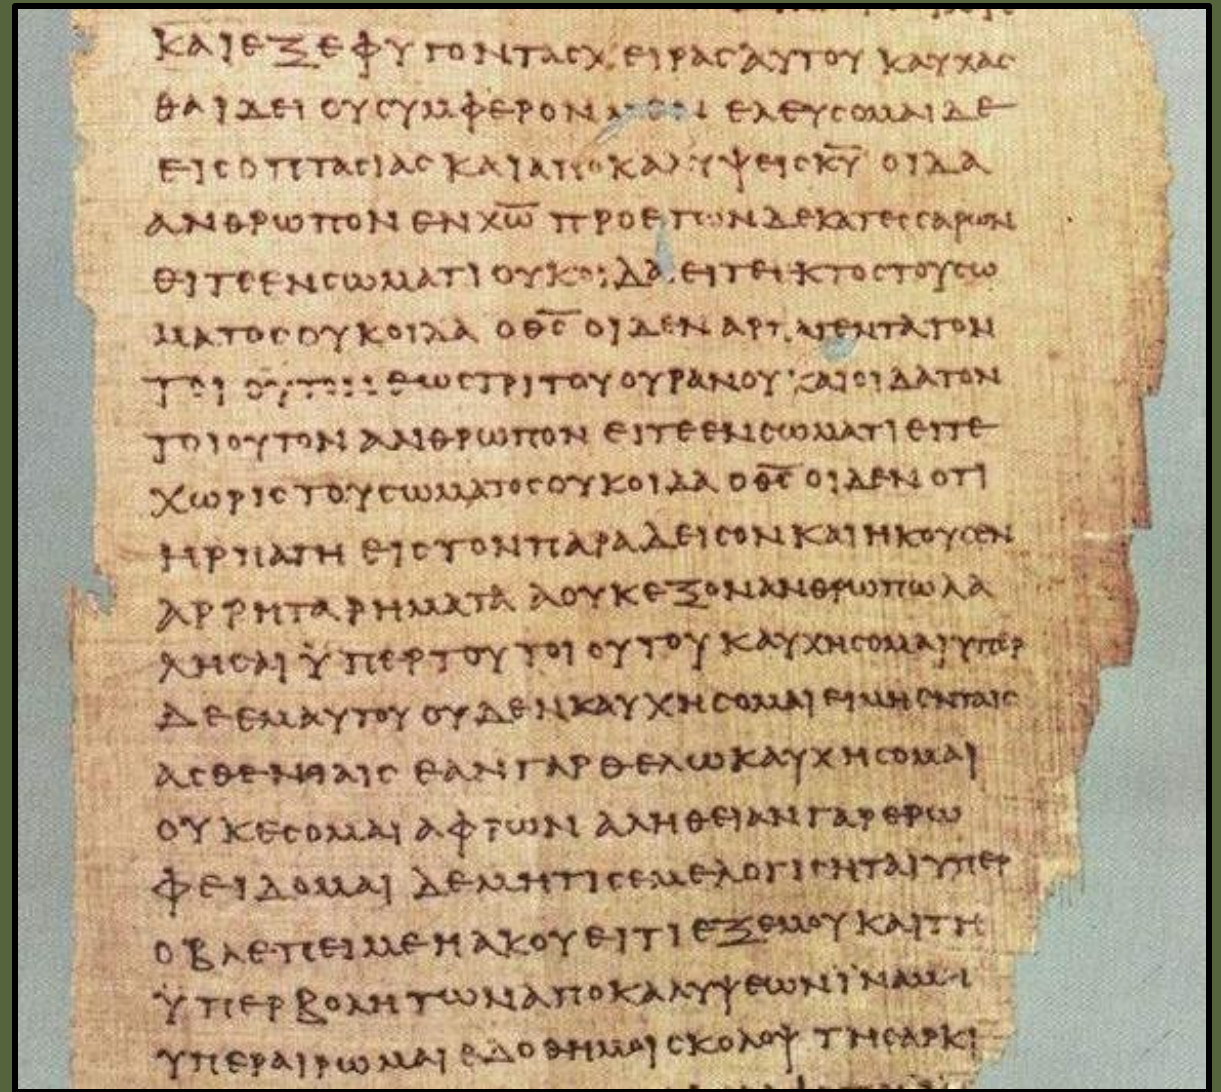 ΚΑΙΕΞΕΦΥΓΟΝΤΑCΧΕΙΡΑCΑΥΤΟΥ ΚΑΥΧΑC
ΘΑΙΔΕΙ ΟΥCΥΜΦΕΡΟΝ ΕΛΕΥCΟΜΑΙΔΕ
ΕΙCΟΠΤΑCΙΑC ΚΑΙΑΠΟΚΑΛΥΨΕΙCΚ̅Υ̅ ΟΙΔΑ
ΑΝΘΡΩΠΟΝ ΕΝΧ̅Ω̅ ΠΡΟΕΤΩΝΔΕΚΑΤΕCCΑΡΩΝ
ΕΙΤΕΕΝCΩΜΑΤΙ ΟΥΚΟΙΔΑ ΕΙΤΕΕΚΤΟCΤΟΥCΩ
ΜΑΤΟCΟΥΚΟΙΔΑ ΟΘ̅C̅ ΟΙΔΕΝ ΑΡΠΑΓΕΝΤΑΤΟΝ
ΤΟΙΟΥΤΟΝ ΕΩCΤΡΙΤΟΥΟΥΡΑΝΟΥ ΚΑΙΟΙΔΑΤΟΝ
ΤΟΙΟΥΤΟΝ ΑΝΘΡΩΠΟΝ ΕΙΤΕΕΝCΩΜΑΤΙΕΙΤΕ
ΧΩΡΙCΤΟΥCΩΜΑΤΟCΟΥΚΟΙΔΑ ΟΘ̅C̅ ΟΙΔΕΝ ΟΤΙ
ΗΡΠΑΓΗ ΕΙCΤΟΝΠΑΡΑΔΕΙCΟΝΚΑΙΗΚΟΥCΕΝ
ΑΡΡΗΤΑΡΗΜΑΤΑ ΑΟΥΚΕΞΟΝΑΝΘΡΩΠΩΛΑ
ΛΗCΑΙ ΫΠΕΡΤΟΥΤΟΙΟΥΤΟΥ ΚΑΥΧΗCΟΜΑΙΥΠΕΡ
ΔΕΕΜΑΥΤΟΥ ΟΥΔΕΝΚΑΥΧΗCΟΜΑΙΕΙΜΗΕΝΤΑΙC
ΑCΘΕΝΕΙΑΙC ΕΑΝΓΑΡΘΕΛΩΚΑΥΧΗCΟΜΑΙ
ΟΥΚΕCΟΜΑΙ ΑΦΡΩΝ ΑΛΗΘΕΙΑΝΓΑΡΕΡΩ
ΦΕΙΔΟΜΑΙ ΔΕΜΗΤΙCΕΜΕΛΟΓΙCΗΤΑΙΥΠΕΡ
ΟΒΛΕΠΕΙΜΕΗΑΚΟΥΕΙΤΙΕΞΕΜΟΥΚΑΙΤΗ
ΫΠΕΡΒΟΛΗΤΩΝΑΠΟΚΑΛΥΨΕΩΝΪΝΑΜΗ
ΥΠΕΡΑΙΡΩΜΑΙ ΕΔΟΘΗΜΟΙCΚΟΛΟΨ ΤΗCΑΡΚΙ